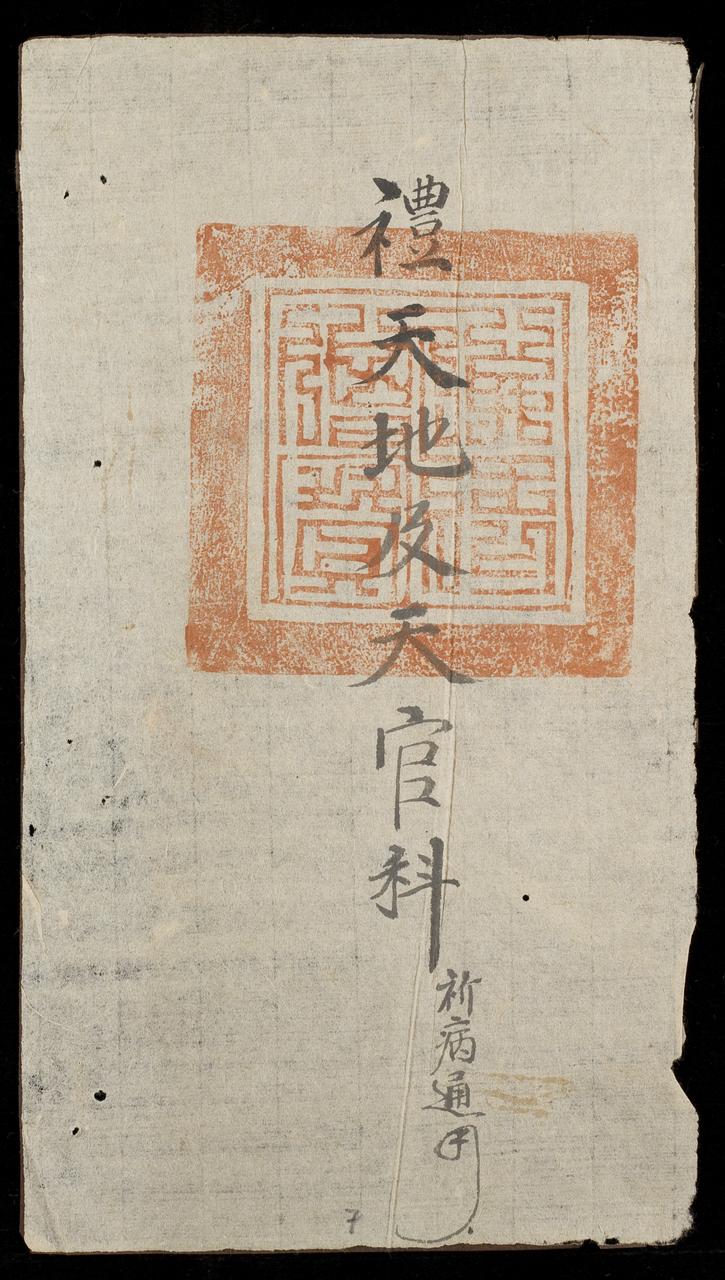 禮天地及天官科
祈病通用
7